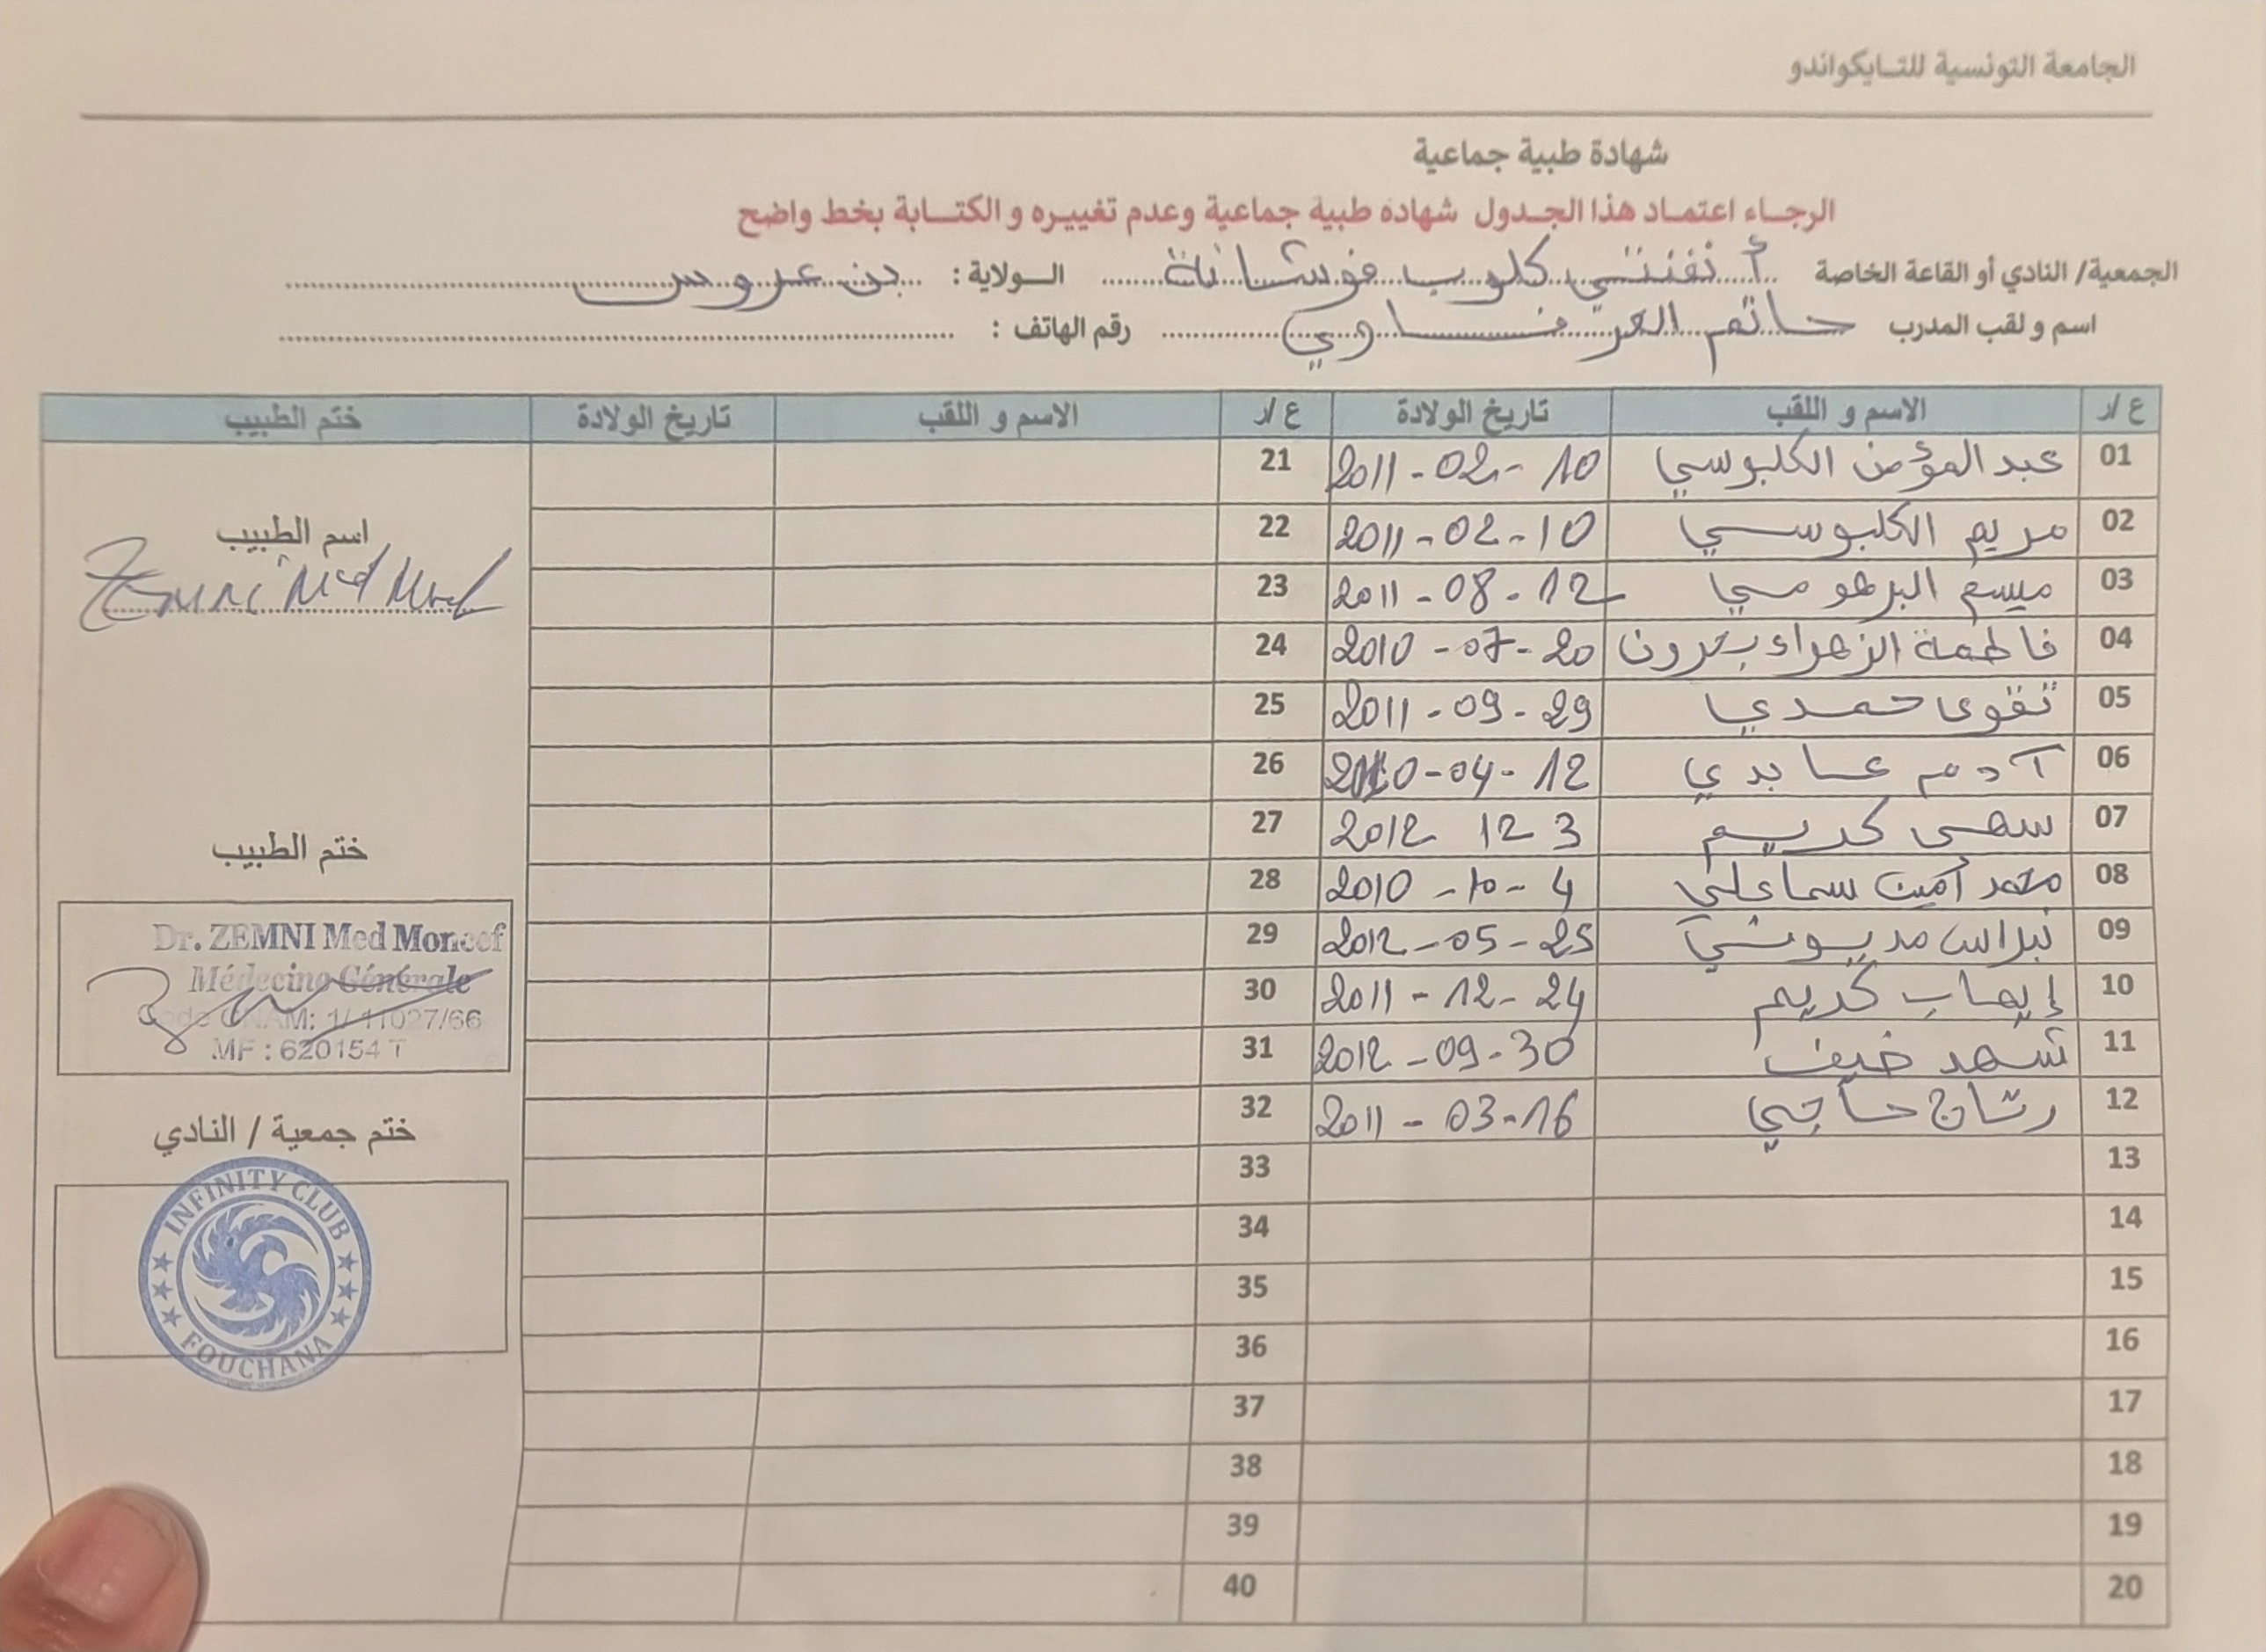 الجامعة التونسية للتايكواندو
شهادة طبية جماعية
الرجاء اعتماد هذا الجدول شهادة طبية جماعية وعدم تغييره و الكتابة بخط واضح
الجمعية/ النادي أو القاعة الخاصة أنفنتي كلوب فوشانة الولاية : بن عروس
اسم و لقب المدرب حاتم العرفاوي رقم الهاتف :
ع /ر الاسم و اللقب تاريخ الولادة ع /ر الاسم و اللقب تاريخ الولادة ختم الطبيب
01 عبد المؤمن الكلبوسي 2011-02-10 21
02 مريم الكلبوسي 2011-02-10 22
03 ميسم البرهومي 2011-08-12 23
04 فاطمة الزهراء 2010-07-20 24
05 تقوى حمدي 2011-09-29 25
06 آدم عابدي 2010-04-12 26
07 سهى كريم 2012 12 3 27
08 محمد أمين سماعلي 2010-10-4 28
09 نبراس مديوني 2012-05-25 29
10 إيهاب كريم 2011-12-24 30
11 شهد ضيف 2012-09-30 31
12 رتاج حاجي 2011-03-16 32
13 33
14 34
15 35
16 36
17 37
18 38
19 39
20 40
اسم الطبيب
Zemni Med
ختم الطبيب
Dr. ZEMNI Med Moncef
Médecine Générale
Code CNAM: 1/11027/66
MF : 620154 T
ختم جمعية / النادي
INFINITY CLUB
FOUCHANA